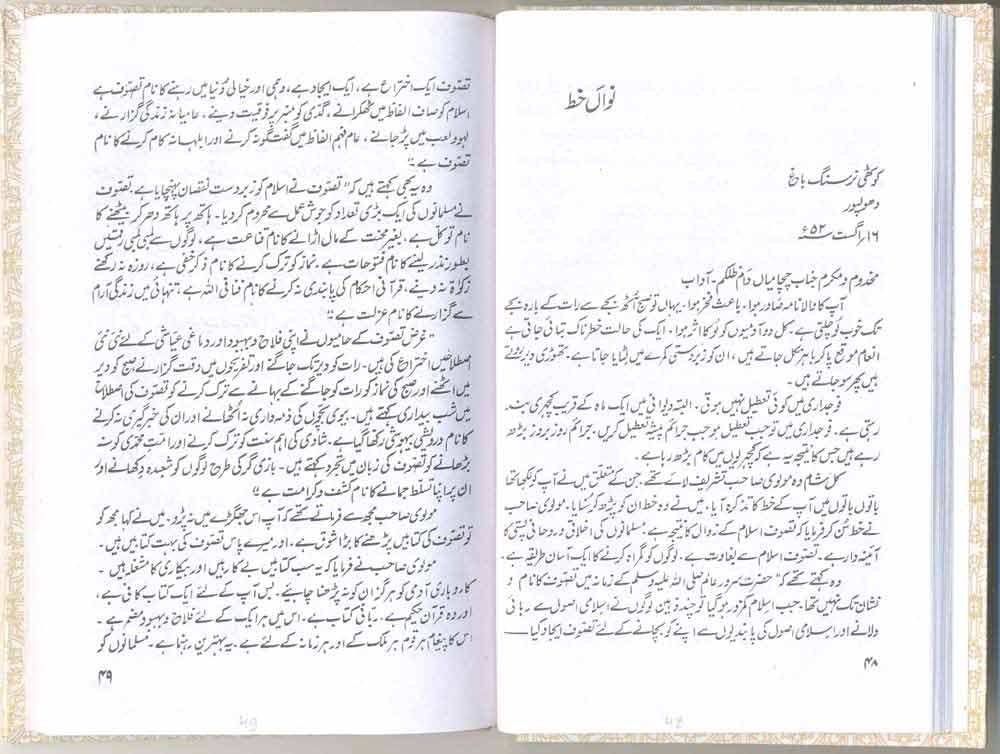 نواں خط
کوٹھی نرسنگ باغ
دھولپور
۱۶؍ اگست ۵۲ء
مخدوم و مکرم جناب چچا میاں دام ظلکم۔ آداب
آپ کا والا نامہ صادر ہوا۔ باعث فخر ہوا۔ یہاں تو صبح آٹھ بجے سے رات کے بارہ بجے
تک خوب لُو چلتی ہے۔ کل دو آدمیوں کو لُو کا اثر ہوا۔ ایک کی حالت خطرناک بتائی جاتی ہے
انعام موقع پا کر باہر نکل جاتے ہیں، ان کو زبردستی کمرے میں لٹایا جاتا ہے۔ تھوڑی دیر لوٹتے
ہیں پھر سو جاتے ہیں۔
فوجداری میں کوئی تعطیل نہیں ہوتی۔ البتہ دیوانی میں ایک ماہ کے قریب کچہری بند
رہتی ہے۔ فوجداری میں تو جب تعطیل ہو جب جرائم پیشہ تعطیل کریں۔ جرائم روز بروز بڑھ
رہے ہیں جس کا نتیجہ یہ ہے کہ کچہریوں میں کام بڑھ رہا ہے۔
کل شام وہ مولوی صاحب تشریف لائے تھے۔ جن کے متعلق میں نے آپ کو لکھا تھا
باتوں باتوں میں آپ کے خط کا تذکرہ آیا، میں نے وہ خط ان کو پڑھ کر سُنایا۔ مولوی صاحب
نے خط سُن کر فرمایا کہ تصوف اسلام کے زوال کا نتیجہ ہے۔ مسلمانوں کی اخلاقی و روحانی پستی کا
آئینہ دار ہے۔ تصوف اسلام سے بغاوت ہے۔ لوگوں کو گمراہ کرنے کا ایک آسان طریقہ ہے۔
وہ کہتے تھے کہ "حضرت سرور عالم صلی اللہ علیہ وسلم کے زمانہ میں تصوف کا نام و
نشان تک نہیں تھا۔ جب اسلام کمزور ہو گیا تو چند ذہین لوگوں نے اسلامی اصول سے رہائی
دلانے اور اسلامی اصول کی پابندیوں سے اپنے کو بچانے کے لئے تصوف ایجاد کیا۔
۴۸
تصوّف ایک اختراع ہے، ایک ایجاد ہے، وہمی اور خیالی دُنیا میں رہنے کا نام تصوّف ہے
اسلام کو صاف الفاظ میں ٹھکرانے، گدّی کو منبر پر فوقیت دینے، عامیانہ زندگی گزارنے،
لہو و لعب میں پڑ جانے، عام فہم الفاظ میں گفت گو نہ کرنے اور ابلہانہ کام کرنے کا نام
تصوّف ہے۔"
وہ یہ بھی کہتے ہیں کہ "تصوّف نے اسلام کو زبردست نقصان پہنچایا ہے۔ تصوّف
نے مسلمانوں کی ایک بڑی تعداد کو جوش عمل سے محروم کر دیا۔ ہاتھ پر ہاتھ دھر کر بیٹھنے کا
نام توکّل ہے، بغیر محنت کے مال اڑانے کا نام قناعت ہے، لوگوں سے لمبی لمبی رقمیں
بطور نذر لینے کا نام فتوحات ہے۔ نماز کو ترک کرنے کا نام ذکر خفی ہے، روزہ نہ رکھنے
زکوٰۃ نہ دینے، قرآنی احکام کی پابندی نہ کرنے کا نام فنا فی اللہ ہے، تنہائی میں زندگی آرام
سے گزارنے کا نام عزلت ہے۔"
"غرض تصوّف کے حامیوں نے اپنی فلاح و بہبود اور دماغی عیاشی کے لئے نئی نئی
اصطلاحیں اختراع کی ہیں۔ رات کو دیر تک جاگنے اور تفریحوں میں وقت گزارنے صبح کو دیر
میں اٹھنے اور صبح کی نماز کو رات کو جاگنے کے بہانے سے ترک کرنے کو تصوّف کی اصطلاح
میں شب بیداری کہتے ہیں۔ بیوی بچوں کی ذمہ داری نہ اُٹھانے اور ان کی خبر گیری نہ کرنے
کا نام درویشی رکھا گیا ہے۔ شادی کی اہم سنت کو ترک کرنے اور امت محمدی کو نہ
بڑھانے کو تصوّف کی زبان میں تجرّد کہتے ہیں۔ بازی گر کی طرح لوگوں کو شعبدہ دکھانے اور
ان پر اپنا تسلط جمانے کا نام کشف و کرامت ہے۔"
مولوی صاحب مجھ سے فرماتے تھے کہ آپ اس جھگڑے میں نہ پڑو۔ میں نے کہا مجھ کو
تو تصوّف کی کتابیں پڑھنے کا بڑا شوق ہے، اور میرے پاس تصوّف کی بہت کتابیں ہیں۔
مولوی صاحب نے فرمایا کہ یہ سب کتابیں بے کار ہیں اور بیکاری کا مشغلہ ہیں۔
کاروباری آدمی کو ہرگز ان کو نہ پڑھنا چاہیئے۔ بس آپ کے لئے ایک کتاب کافی ہے،
اور وہ قرآن حکیم ہے۔ ربّانی کتاب ہے۔ اس میں ہر ایک کے لئے فلاح و بہبود مضمر ہے۔
اس کا پیغام ہر قوم ہر ملک کے اور ہر زمانہ کے لئے ہے۔ یہ بہترین رہنما ہے۔ مسلمانوں کو
۴۹
49
48